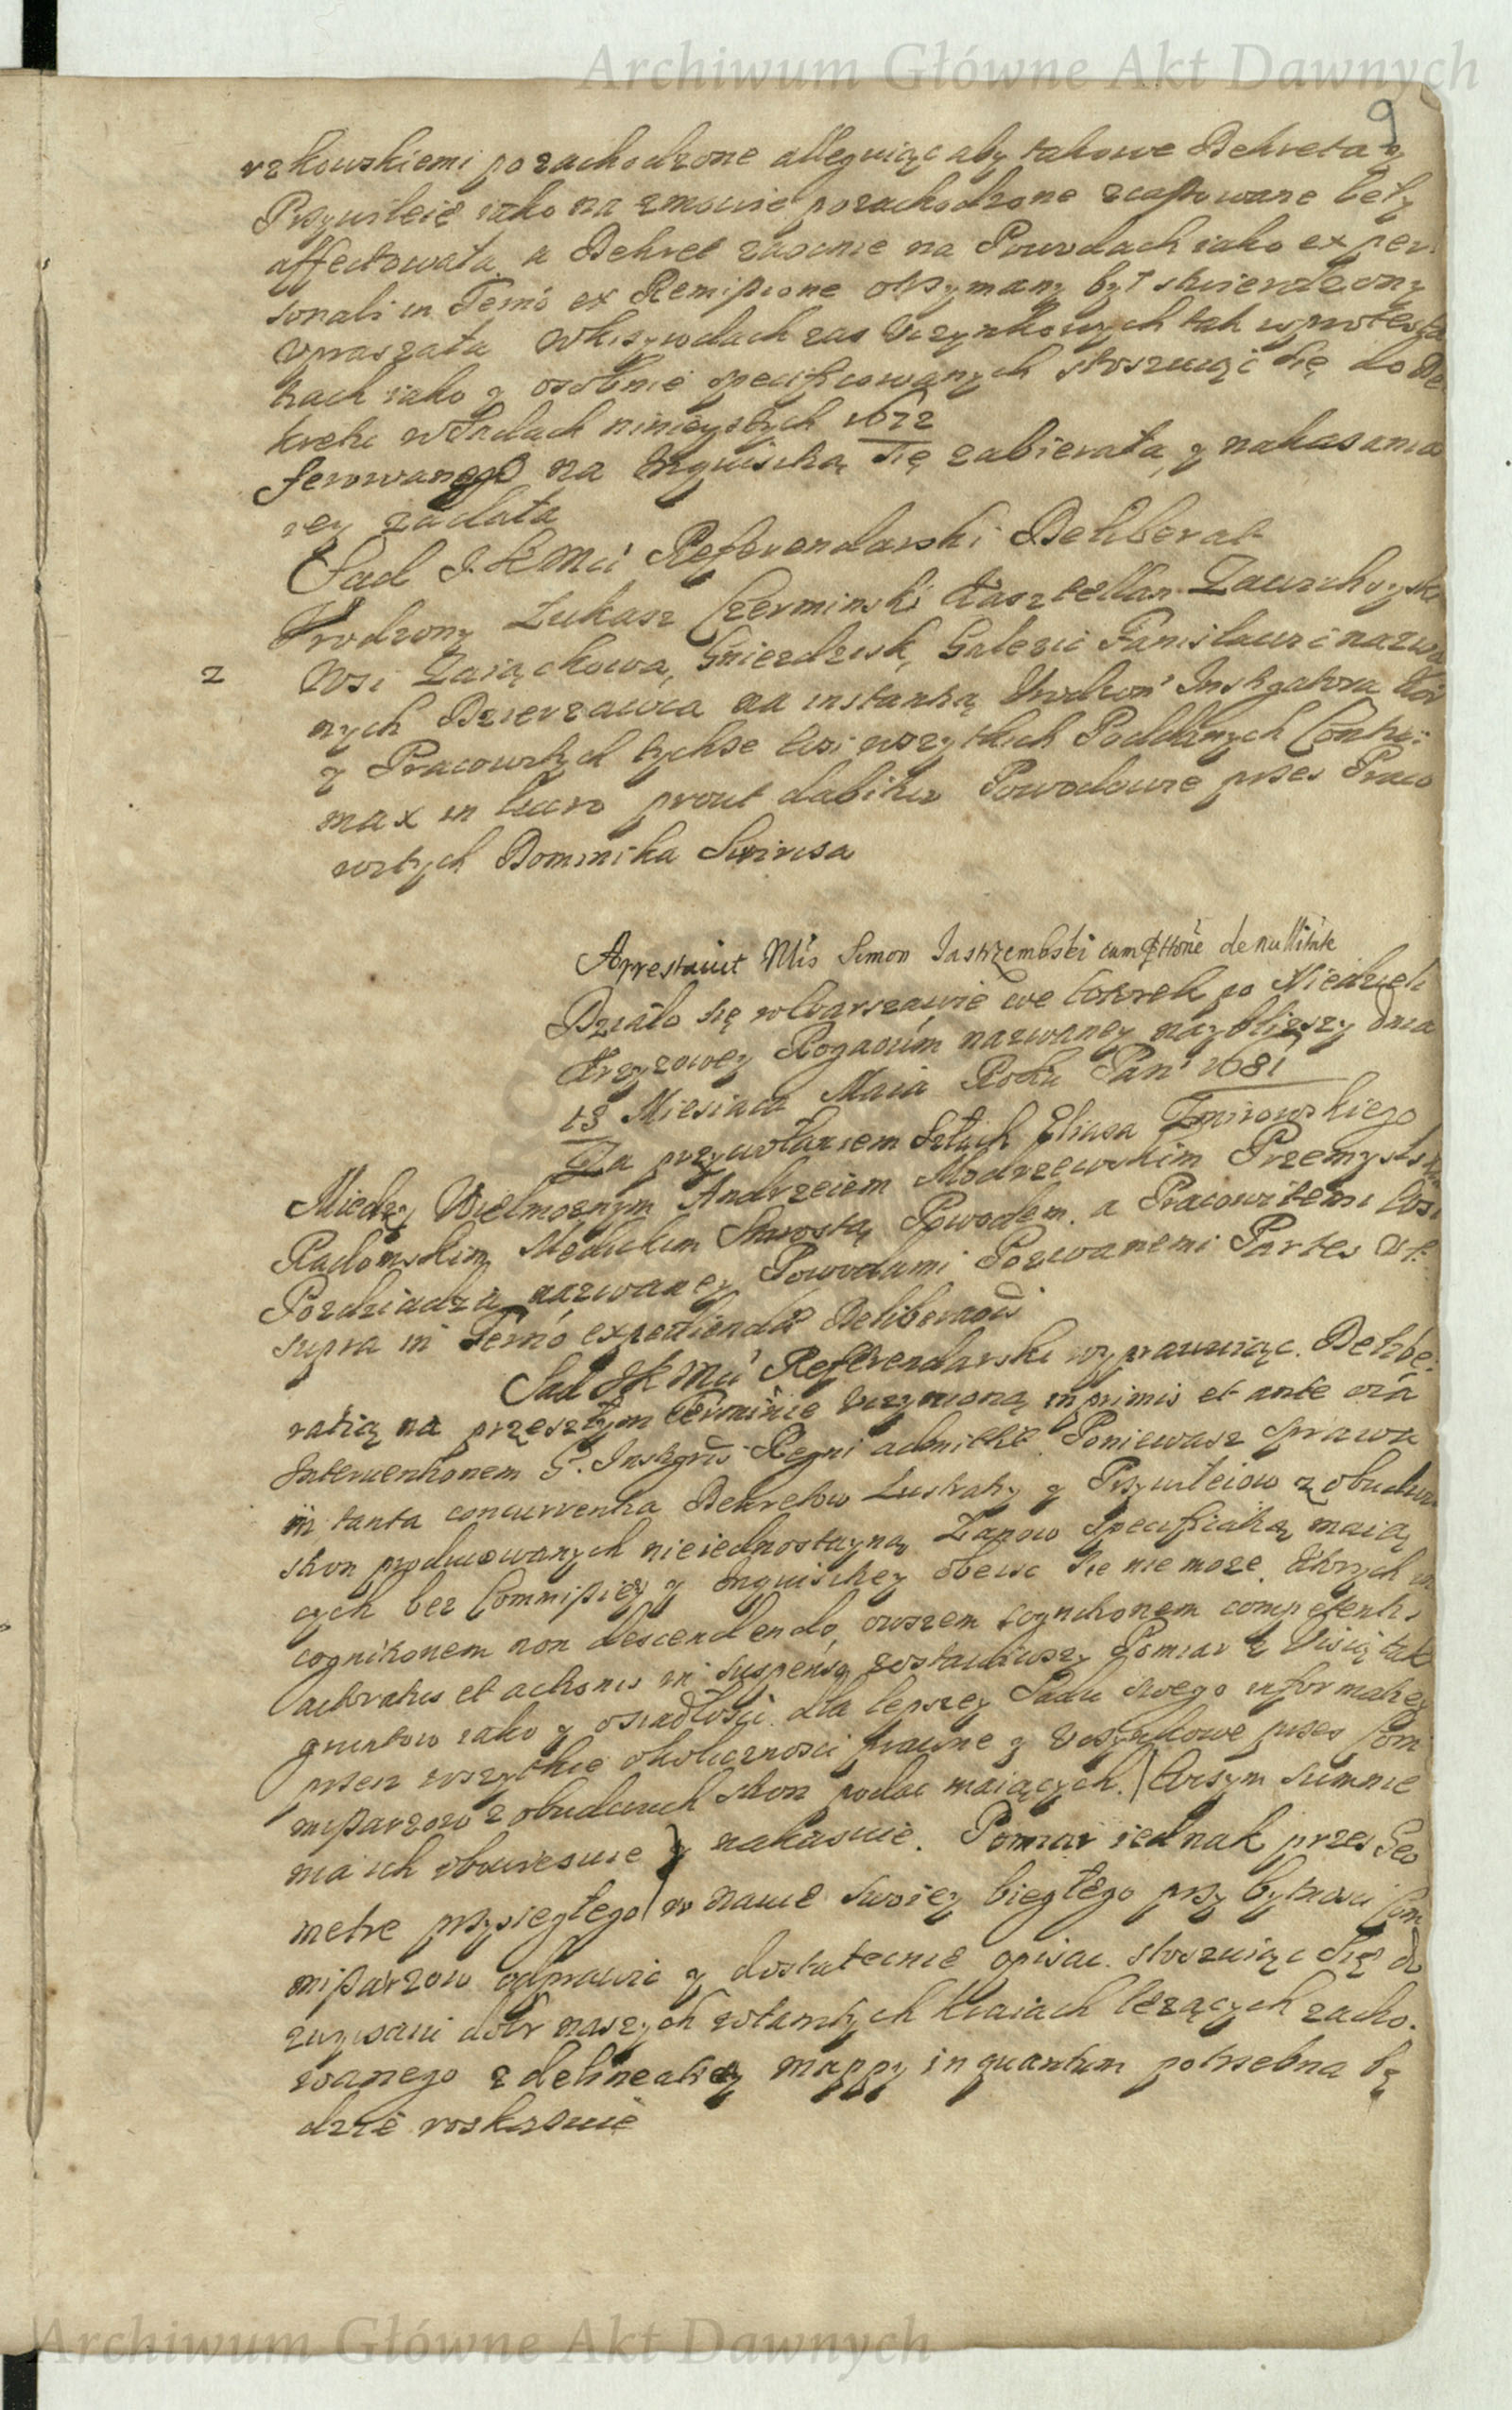 Archiwum Główne Akt Dawnych
9
rzkowskiemi pozachodzone alleguiąc aby takowe Dekreta y
Przywileie iako na zmowie pozachodzone zcassowane były
affectowała, a Dekret zaocznie na Powodach iako ex per
sonali in Termō ex Remissione otrzymany był stwierdzony
vpraszała w krzywdach zas vczynkowych tak w protesta
kretu w Sądach ninieyszych 1672
ferowanego na Inquisitią się zabierała, y nakazania
iey żądała
Sąd J. K Mci Referendarski Deliberat
2
Vrodzony Łukasz Czerminski Kasztellan Zawichoyski
Wsi Zaiączkowa, Gniezdzisk,
nych Dzierzawca na instantią Vrodzon Instigatora Kor
y Pracowitych tychze wsi wszytkich Poddanych
max in lucro prout dabitur Powodowie przez Praco
witych Dominika
Arrestavit Mīs Simon Jastrzembski cum de nullitate
Działo się w Warszawie we wtorek po Niedzieli
Krzyzowey Rogaōum nazwaney naybliższy dnia
13 Miesiaca Maia Roku Pan 1681
Za przywołaniem Szlach Eliasa Zmirowskiego
Miedzy Wielmoznym Andrzeiem Modrzewskim Przemyslskim
Radomskim Medickim Starostą Powodem. a Pracowitemi wsi
Pozdziadza nazwaney Powodami Pozwanemi Partes vt
supra in Termō expedienda Deliberaōi
Sąd JK Mci Referendarski wyprawuiąc Delibe
ratią na przeszłym Terminie vczynioną inprimis et ante oīa
Interuentionem G. Instigrīs Regni admittit. Poniewasz sprawa
in tanta concurrentia Dekretow Lustraty y Przywileiow z obudwu
stron producowanych nieiednostayną Łanow specificatią maią
cych bez Commissiey y Inquisitiey obeysc się nie może. w ktorych in
cognitionem non descendendo, owszem cognitionem competentis
actoratus et actionis in suspenso zostawiwszy Pomiar z Visią tak
gruntow iako y osiadłosci dla lepszey Sadu swego informatiey
przez wszytkie okolicznosci prawne y vczynkowe przez Com
missarzow z obudwuch stron podac maiących. w czym sumnie
nia ich obwiezuie y nakazuie. Pomiar iednak przez Geo
metre przysiegłego w nauce swoiey biegłego przy bytnosci Com
missarzow odprawic y dostatecznie opisac. stoszuiąc się do
zwyczaiu dobr naszych w tamtych kraiach leżących zacho
wanego z delineatią mappy in quantum potrzebna bę
dzie roskazuie
Archiwum Główne Akt Dawnych